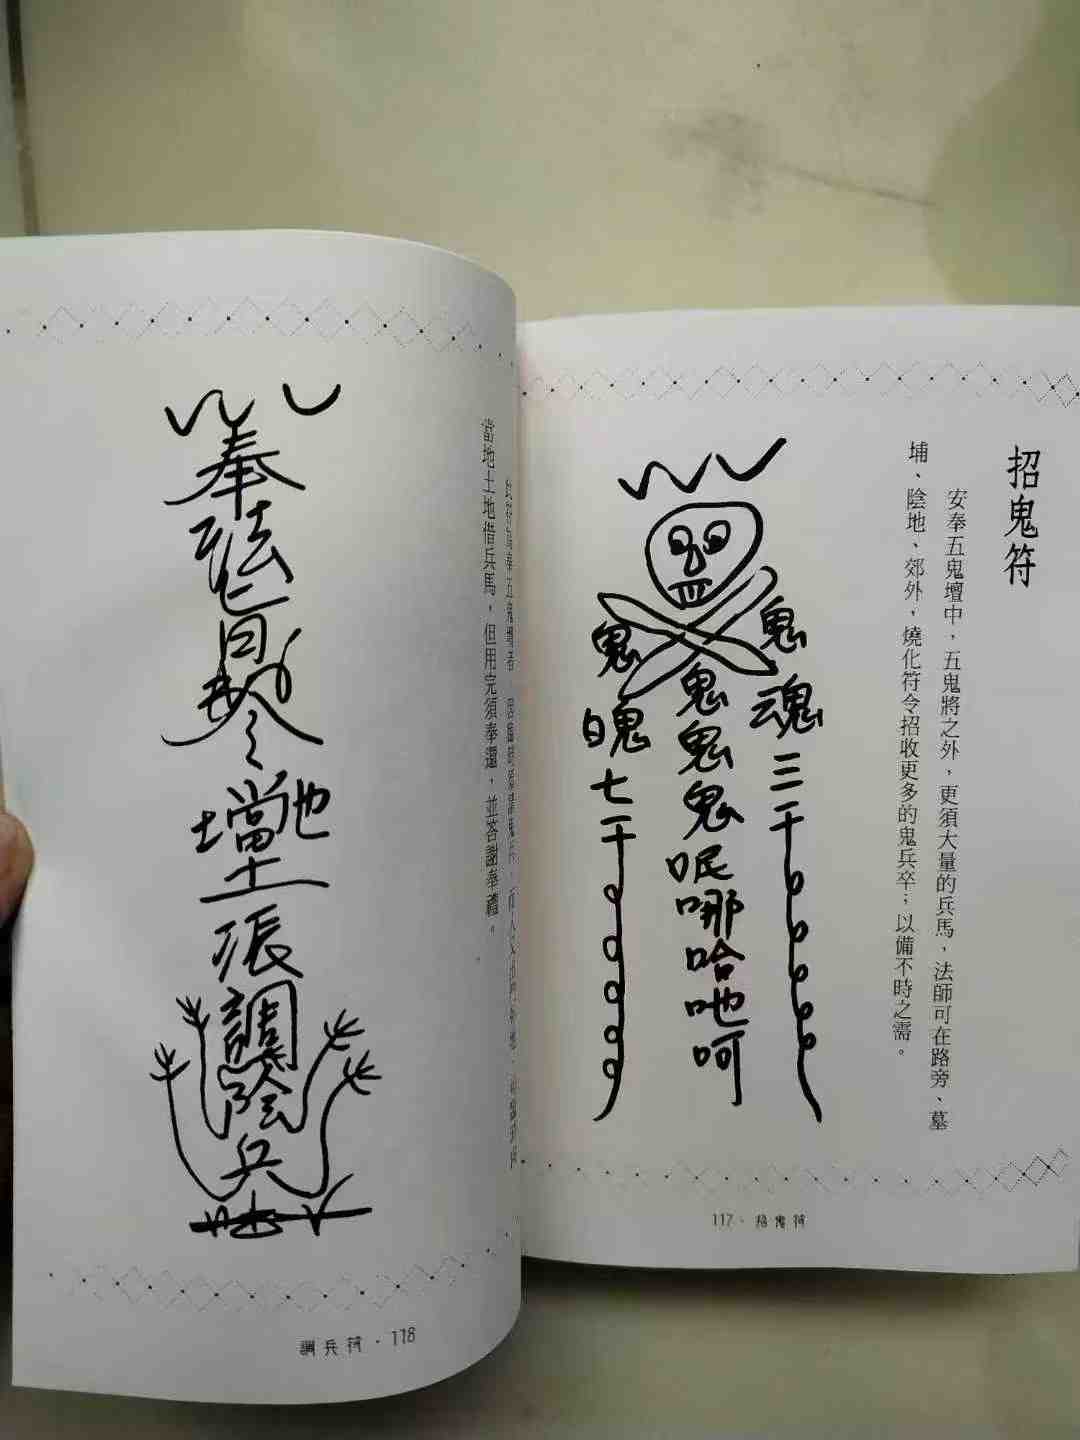 招鬼符
安奉五鬼壇中，五鬼將之外，更須大量的兵馬，法師可在路旁、墓
埔、陰地、郊外，燒化符令招收更多的鬼兵卒；以備不時之需。
鬼魂三千
鬼鬼鬼呢哪哈吔呵
鬼魄七千
117·招鬼符
當地土地借兵馬，但用完須奉還，並答謝奉禮。
奉法
令
當地
土
張
調陰兵
調兵符·118